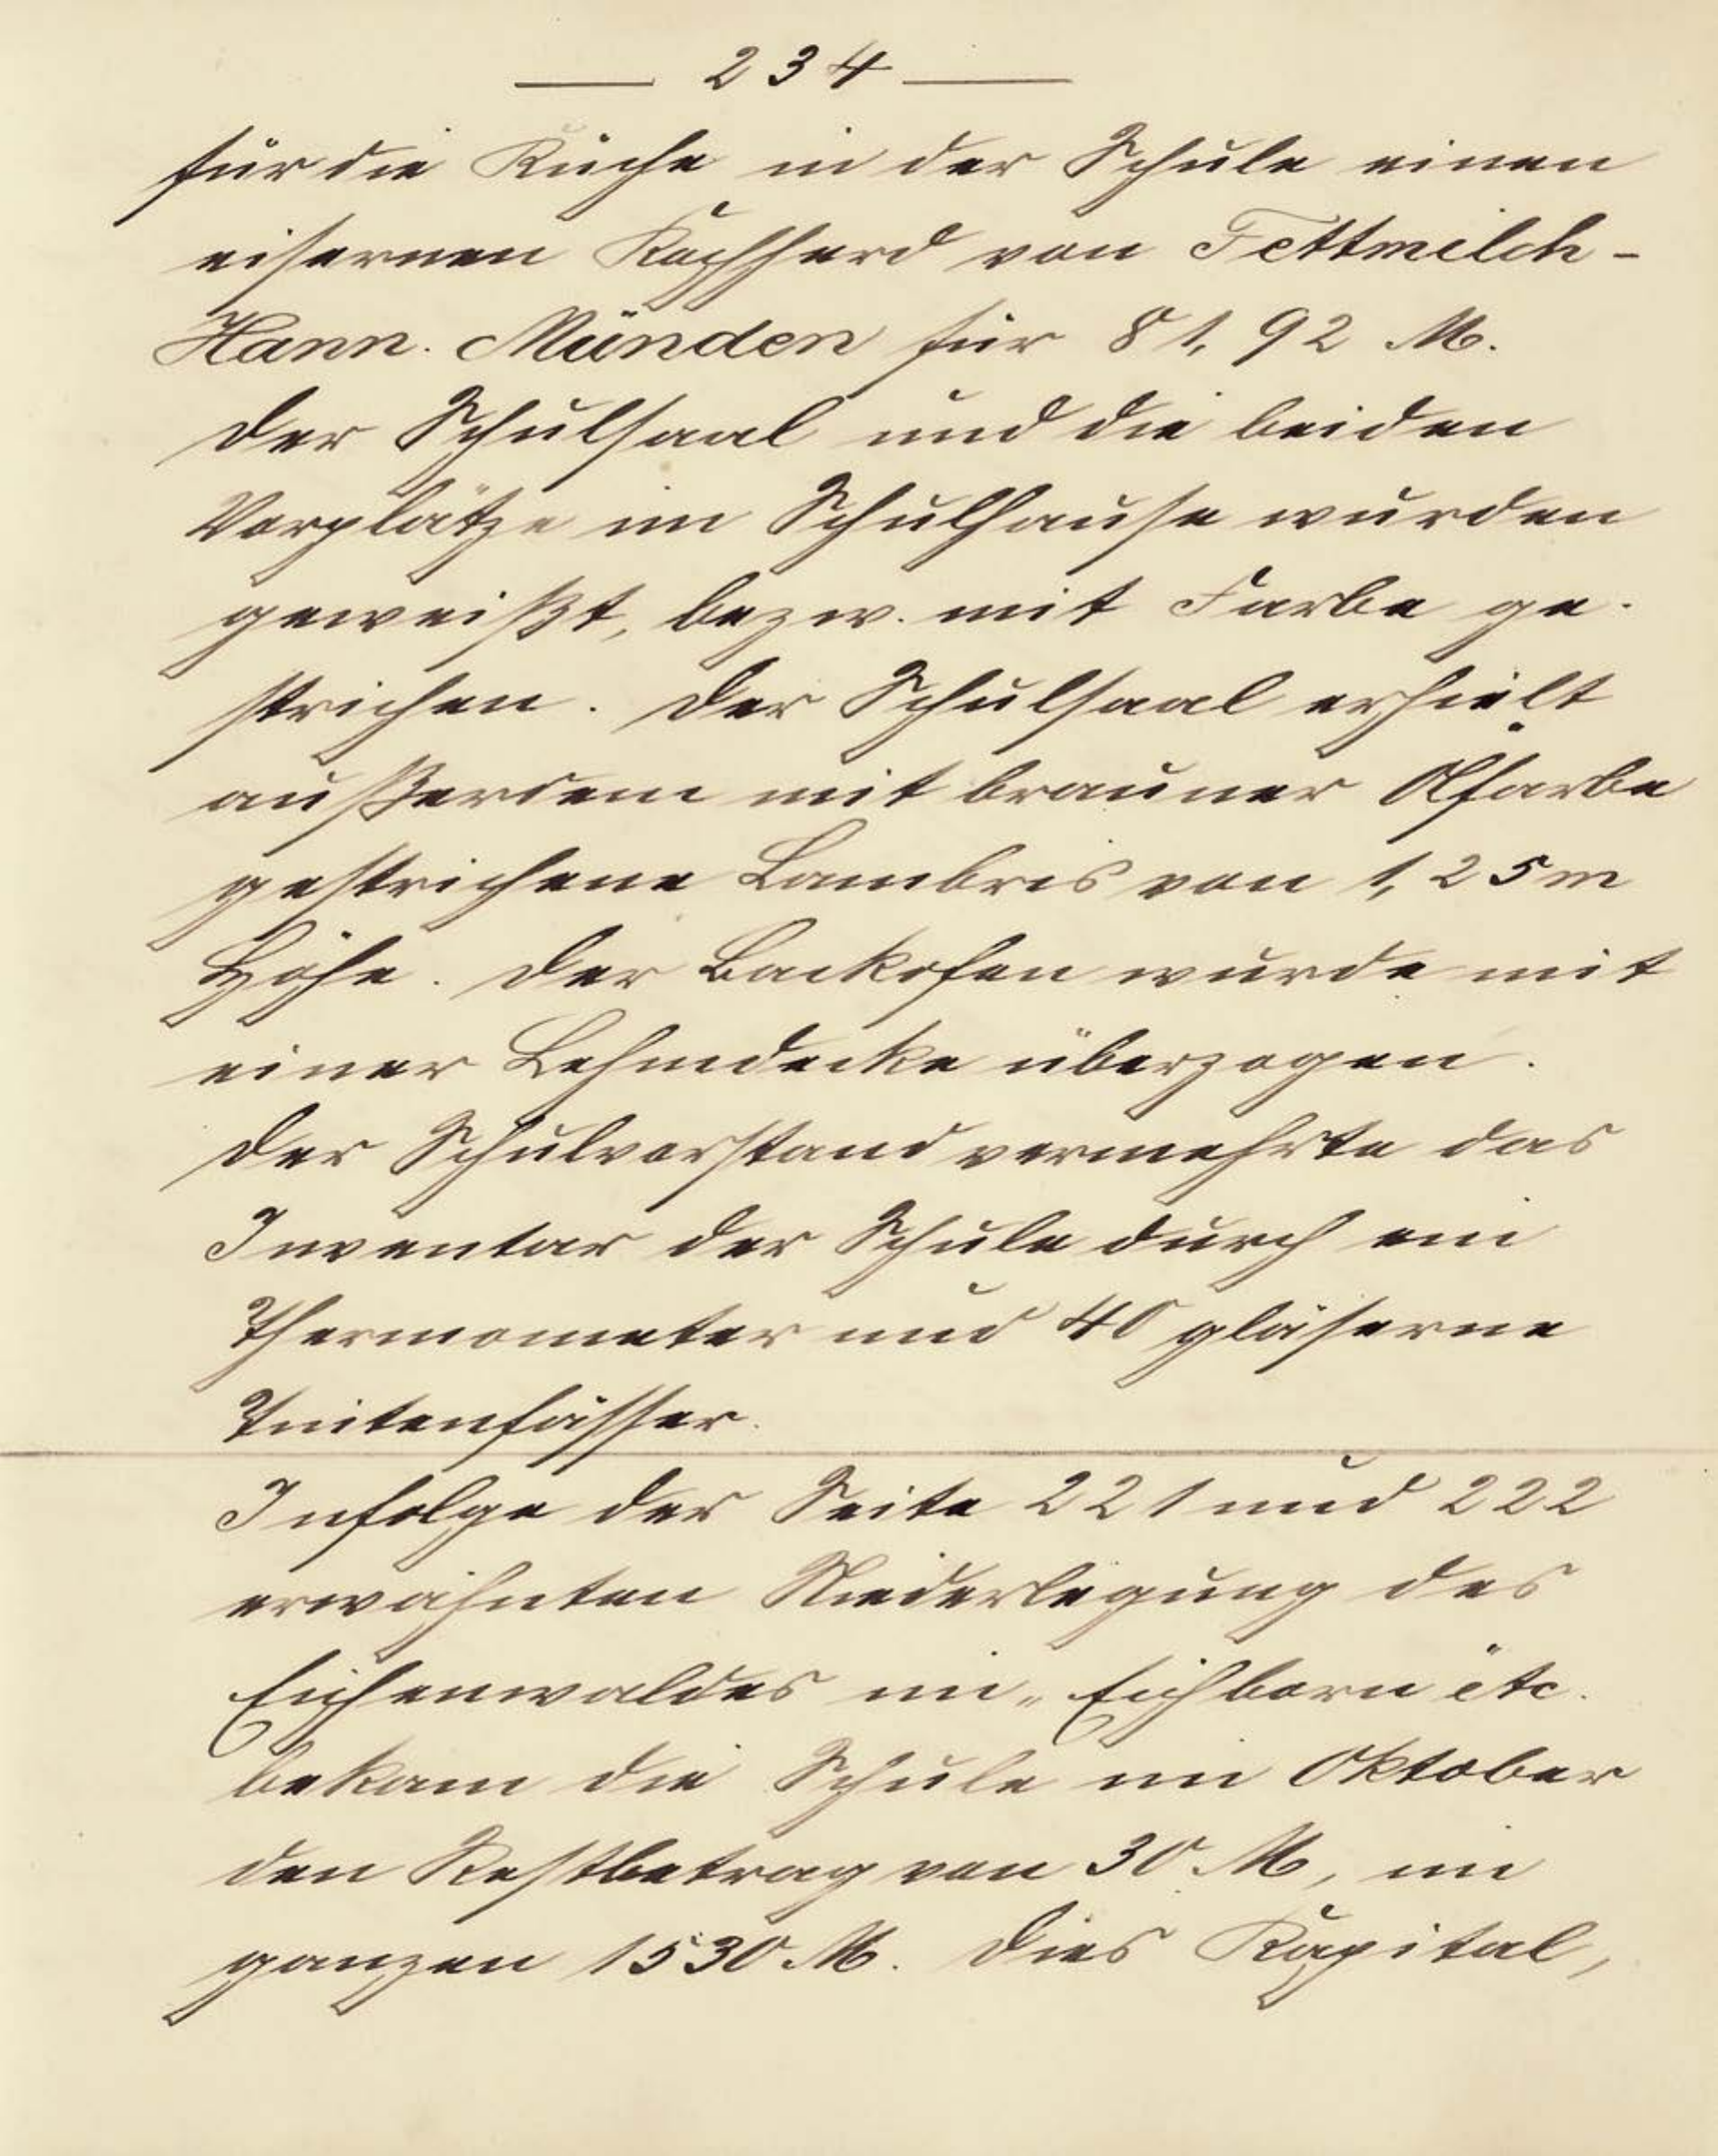 — 234 —
für die Küche in der Schule einen
eisernen Kochherd von Fettmilch-
Hann. Münden für 81,92 M.
Der Schulsaal und die beiden
Vorplätze im Schulhause wurden
geweißt, bezw. mit Farbe ge-
strichen. Der Schulsaal erhielt
außerdem mit brauner Ölfarbe
gestrichene Lambris von 1,25 m
Höhe. Der Backofen wurde mit
einer Lehmdecke überzogen.
Der Schulvorstand vermehrte das
Inventar der Schule durch ein
Thermometer und 40 gläserne
Tintenfässer.
Infolge der Seite 221 und 222
erwähnten Niederlegung des
Eichenwaldes im „Eichborn" etc.
bekam die Schule im Oktober
den Restbetrag von 30 M, im
ganzen 1530 M. Dies Kapital,